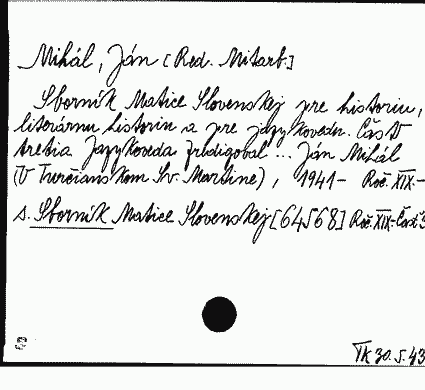 Mihál, Ján [Red. Mitarb.]
Sborník Matice Slovenskej pre historiu,
literárnu historiu a pre jazykovedu. Časť
tretia Jazykoveda Zredigoval ... Ján Mihál
(V Turčianskom Sv. Martine), 1941- Roč. XIX.-
s. Sborník Matice Slovenskej [64568] Roč. XIX-Časť 3
TK 30.5.43